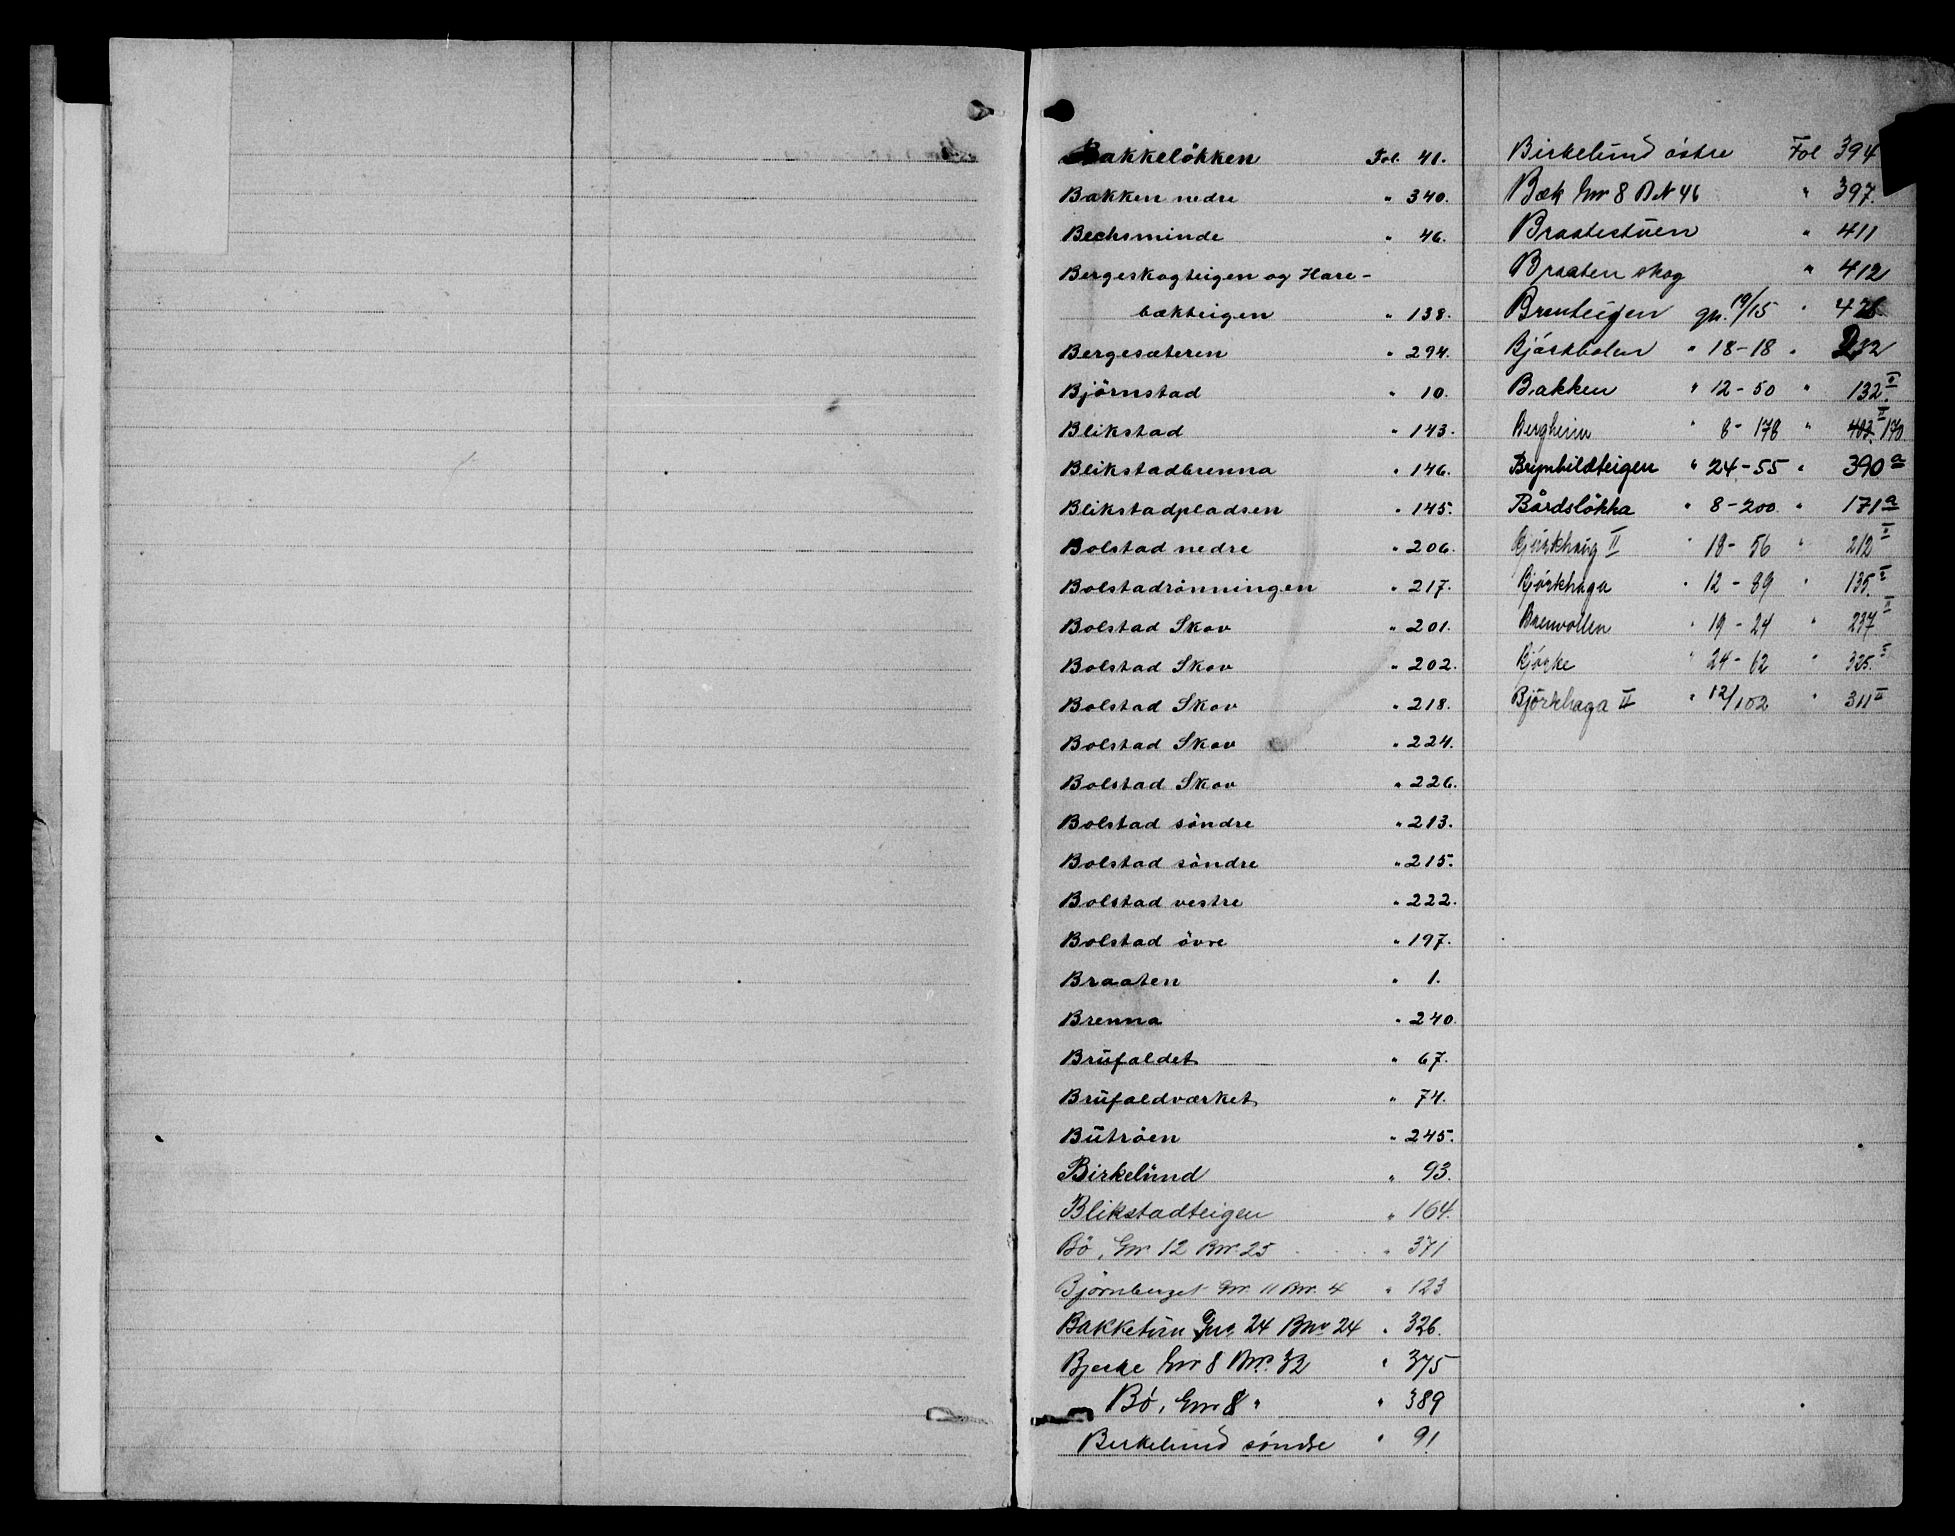 Bakkelökken Fol. 41.
Bakken nedre " 340.
Bechsminde " 46.
Bergeskogteigen og Hare-
bækteigen " 138.
Bergesæteren " 294.
Björnstad " 10.
Blikstad " 143.
Blikstadbrenna " 146.
Blikstadpladsen " 145.
Bolstad nedre " 206.
Bolstadrönningen " 217.
Bolstad Skov " 201.
Bolstad Skov " 202.
Bolstad Skov " 218.
Bolstad Skov " 224.
Bolstad Skov " 226.
Bolstad söndre " 213.
Bolstad söndre " 215.
Bolstad vestre " 222.
Bolstad övre " 197.
Braaten " 1.
Brenna " 240.
Brufaldet " 67.
Brufaldværket " 74.
Butröen " 245.
Birkelund " 93.
Blikstadteigen " 164.
Bö, Gnr 12 Bnr. 25 " 371
Bjørnberget Gnr. 11 Bnr. 4 " 123
Bakketun Gnr. 24 Bnr 24 " 326.
Bjerke Gnr 8 Bnr. 32 " 375
Bø, Gnr 8 " " 389
Birkelund søndre " 91
Birkelund østre Fol 394
Bæk Gnr 8 B N 46 " 397.
Braatestuen " 411
Braaten skog " 412
Brenteigen gn. 19/15 " 428
Björkholen " 18-18 " 232
Bakken " 12-50 " 132 II
Bergheim " 8-178 " 403. II 170
Brynhildteigen " 24-55 " 390 a
Bårdslökka " 8-200 " 171 a
Björkhaug II " 18-56 " 212 II
Björkhaga " 12-89 " 135. II
Brenvollen " 19-24 " 237 II
Bjørke " 24-62 " 325. II
Björkhaga II " 12/102 " 311 II